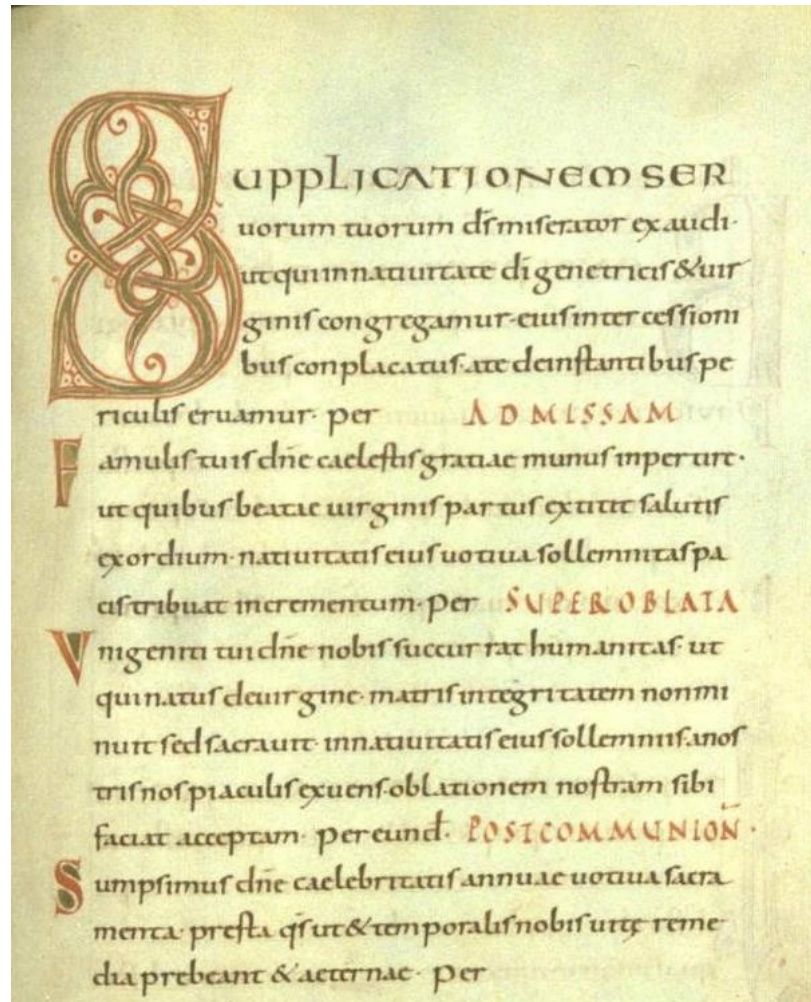 SUPPLICATIONEM SER
uorum tuorum dš miserator exaudi·
ut qui innatiuitate dī genetricis & uir
ginis congregamur· eius intercessioni
bus conplacatus· a te deinstantibus pe
riculis eruamur· per AD MISSAM
Famulis tuis dn̄e caelestis gratiae munus inpertire·
ut quibus beatae uirginis partus extitit salutis
exordium· natiuitatis eius uotiua sollemnitas pa
cis tribuat incrementum· per SUPER OBLATA
Vnigeniti tui dn̄e nobis succurrat humanitas· ut
qui natus deuirgine· matris integritatem non mi
nuit sed sacrauit· innatiuitatis eius sollemniis· anos
tris nos piaculis exuens· oblationem nostram sibi
faciat acceptam· per eund̄· POSTCOMMUNION̄·
Sumpsimus dn̄e caelebritatis annuae uotiua sacra
menta· presta q̄s ut & temporalis nobis uitę reme
dia prebeant & aeternae· per